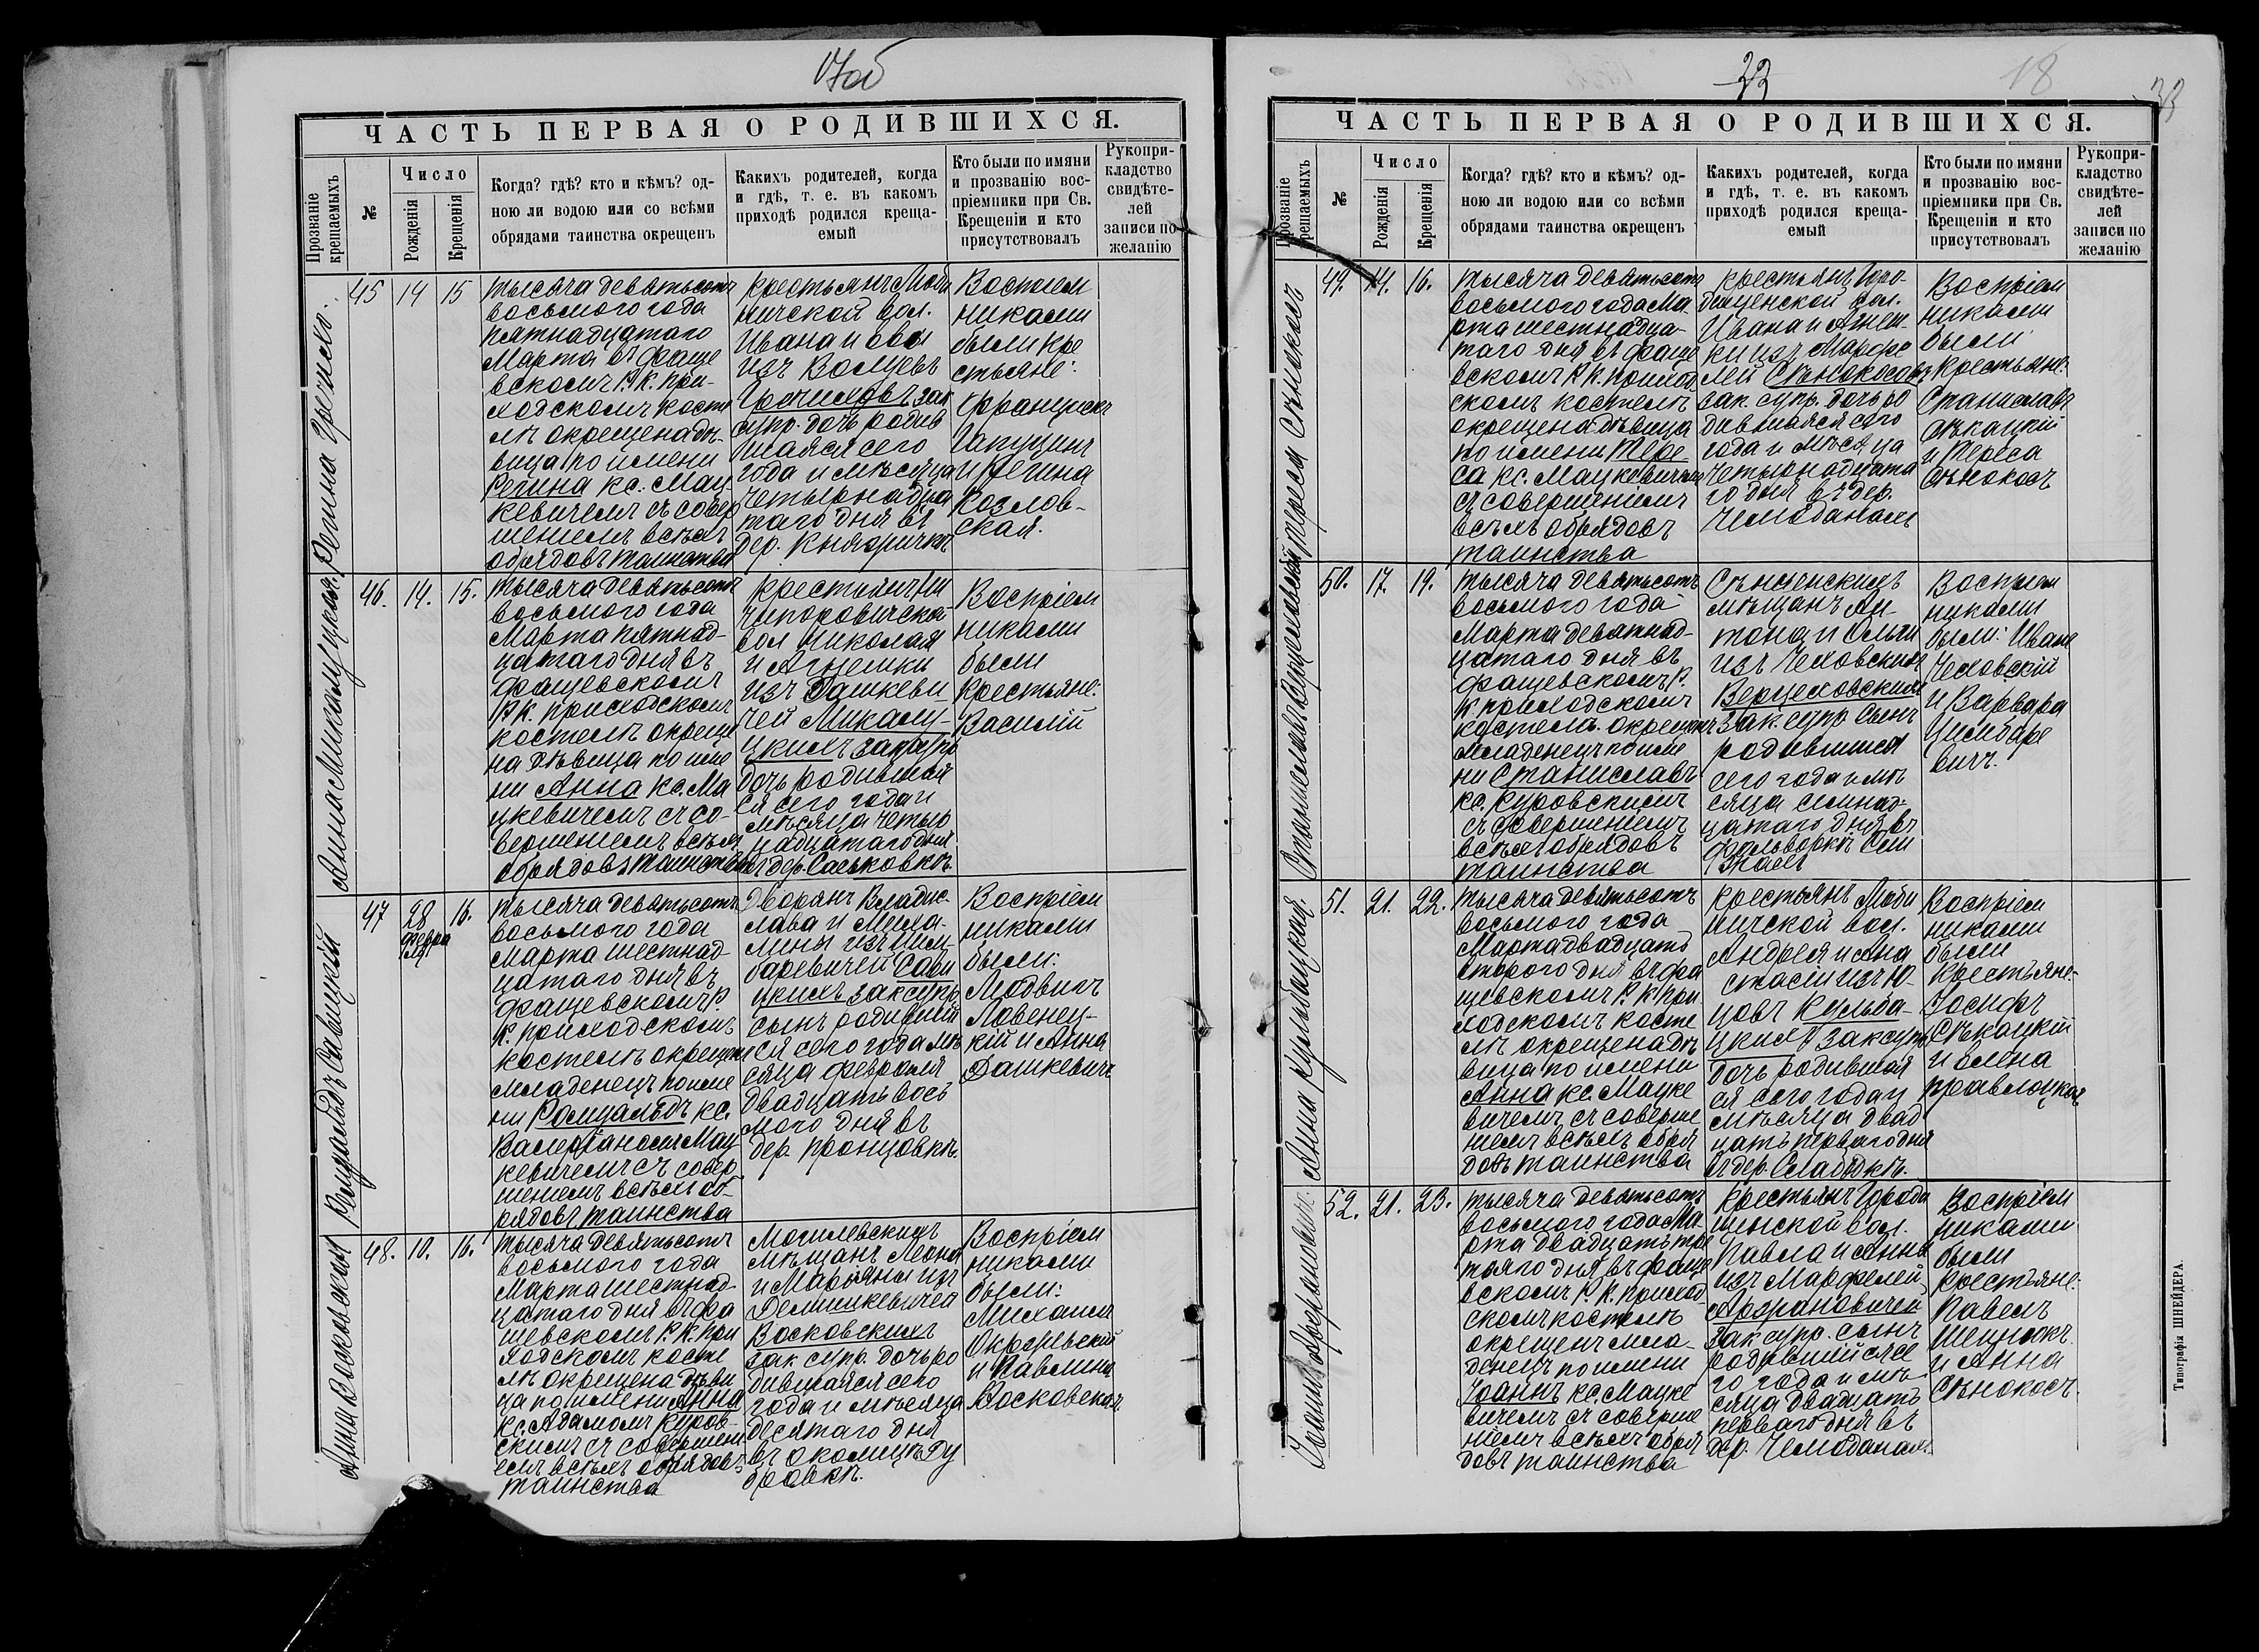 17об
ЧАСТЬ ПЕРВАЯ О РОДИВШИХСЯ.
Прозваніе крещаемыхъ
№
Число
Рожденія
Крещенія
Когда? гдѣ? кто и кѣмъ? од-
ною ли водою или со всѣми
обрядами таинства окрещенъ
Какихъ родителей, когда
и гдѣ, т. е. въ какомъ
приходѣ родился креща-
емый
Кто были по имяни
и прозванію вос-
пріемники при Св.
Крещеніи и кто
присутствовалъ
Рукопри-
кладство
свидѣте-
лей
записи по
желанію
Регина
45 14 15
тысяча девятьсотъ
восьмого года
пятнадцатого
Марта въ Фаще
вскомъ Р. К. при-
ходскомъ косте
лѣ окрещена дѣ-
вица по имени
Регина кс. Мац
кевичемъ съ совер
шеніемъ всѣхъ
обрядовъ таинства
крестьянъ Моби
ничской вол.
Ивана и
изъ
зак
супр. дочь родив
шаяся сего
года и мѣсяца
четырнадца
таго дня въ
дер. Княжичкѣ
Воспріем
никами
были кре
стьяне:
Францискъ
и Регина
Козлов-
ская.
Анна Микамуцкая.
46. 14. 15.
тысяча девятьсотъ
восьмого года
Марта пятнад-
цатаго дня въ
Фащевскомъ
Р К. приходскомъ
костелѣ окреще
на дѣвица по име
ни Анна кс. Ма
цкевичемъ съ со-
вершеніемъ всѣхъ
обрядовъ таинства
крестьянъ Ни
чипоровичской
вол Николая
и Агнешки
изъ Дашкеви
чей Микалу-
цкихъ зак супр
дочь родившая
ся сего года и
мѣсяца четыр
надцатаго дня
въ дер. Саськовкѣ
Воспріем
никами
были
крестьяне:
Василій
Ромуальдъ Савицкій
47 28 Февраля 16.
тысяча девятьсотъ
восьмого года
Марта шестнад-
цатаго дня въ
Фащевскомъ Р.
К. приходскомъ
костелѣ окрещенъ
младенецъ по име
ни Ромуальдъ кс.
Валеріаномъ Мац
кевичемъ съ совер
шеніемъ всѣхъ об-
рядовъ таинства
Дворянъ Владис-
лава и Миха-
лины изъ Цим
баревичей Сави
цкихъ зак супр
сынъ родившій
ся сего года мѣ
сяца февраля
двадцать вось
мого дня въ
дер. Пронцовкѣ.
Воспріем
никами
были:
Людвигъ
Ловенец-
кій и Анна
Дашкевичъ
Анна Восковская
48. 10. 16.
тысяча девятьсотъ
восьмого года
Марта шестнад-
цатаго дня въ Фа
щевскомъ Р. К. при
ходскомъ косте
лѣ окрещена дѣви
ца по имени Анна
кс. Адамомъ Куров-
скимъ съ совершені
емъ всѣхъ обрядовъ
таинства
Могилевскихъ
мѣщанъ Леона
и Маріяны изъ
Демишкевичей
Восковскихъ
зак супр. дочь ро
дившаяся сего
года и мѣсяца
десятаго дня
въ околицѣ Ду
бровкѣ.
Воспріем
никами
были:
Михаилъ
и Павлина
Восковская
33
18
33
ЧАСТЬ ПЕРВАЯ О РОДИВШИХСЯ.
Прозваніе крещаемыхъ
№
Число
Рожденія
Крещенія
Когда? гдѣ? кто и кѣмъ? од-
ною ли водою или со всѣми
обрядами таинства окрещенъ
Какихъ родителей, когда
и гдѣ, т. е. въ какомъ
приходѣ родился креща-
емый
Кто были по имяни
и прозванію вос-
пріемники при Св.
Крещеніи и кто
присутствовалъ
Рукопри-
кладство
свидѣте-
лей
записи по
желанію
Тереса Сѣнокосъ
49. 14. 16.
тысяча девятьсотъ
восьмого года Ма-
рта шестнадца-
таго дня въ Фаще
вскомъ Р К. приход
скомъ костелѣ
окрещена дѣвица
по имени Тере
са кс. Мацкевичемъ
съ совершеніемъ
всѣхъ обрядовъ
таинства
крестьянъ Горо-
дищенской вол.
Ивана и Агнеш-
ки изъ Марфе
лей Сѣнокосовъ
зак. супр. дочь ро
дившаяся сего
года и мѣсяца
четырнадцата
го дня въ дер.
Чемоданахъ
Воспріем
никами
были
крестьяне:
Станиславъ
Сѣкацкій
и Тереса
Сѣнокосъ
Станиславъ Верцеховскій
50. 17. 19.
тысяча девятьсотъ
восьмого года
Марта девятнад-
цатаго дня въ
Фащевскомъ Р.
К. приходскомъ
костелѣ окрещенъ
младенецъ по име
ни Станиславъ
кс. Куровскимъ
съ совершеніемъ
всѣхъ обрядовъ
таинства
Сѣнненскихъ
мѣщанъ Ан-
тона и Ольги
изъ Чеховскихъ
Верцеховскихъ
зак. супр. сынъ
родившійся
сего года и мѣ
сяца семнад-
цатаго дня въ
фольваркѣ
Воспріем
никами
были: Иванъ
Чеховскій
и Варвара
Цимбаре
вичъ.
Анна Кульбацкая.
51. 21. 22.
тысяча девятьсотъ
восьмого года
Марта двадцать
второго дня въ Фа
щевскомъ Р. К. при
ходскомъ косте
лѣ окрещена дѣ
вица по имени
Анна кс. Мацке
вичемъ съ соверше
ніемъ всѣхъ обря
довъ таинства
крестьянъ Моби
ничской вол.
Андрея и Ана
стасіи изъ Ю-
цовъ Кульба-
цкихъ зак супр
дочь родившая
ся сего года и
мѣсяца двад
цать перваго дня
въ дер. Слабодкѣ.
Воспріем
никами
были
крестьяне:
Іосифъ
Сѣкацкій
и Елена
Іоаннъ Афрановичъ.
52. 21. 23.
тысяча девятьсотъ
восьмого года Ма-
рта двадцать тре
тьяго дня въ Фаще
вскомъ Р. К. приход
скомъ костелѣ
окрещенъ мла-
денецъ по имени
Іоаннъ кс. Мацке
вичемъ съ соверше
ніемъ всѣхъ обря
довъ таинства
крестьянъ Городи
щенской вол.
Павла и Анны
изъ Марфелей
Афрановичей
зак супр. сынъ
родившійся се
го года и мѣ-
сяца двадцать
перваго дня въ
дер. Чемоданахъ.
Воспріем
никами
были
крестьяне:
Павелъ
и Анна
Сѣнокосъ.
Типографія ШНЕЙДЕРА.